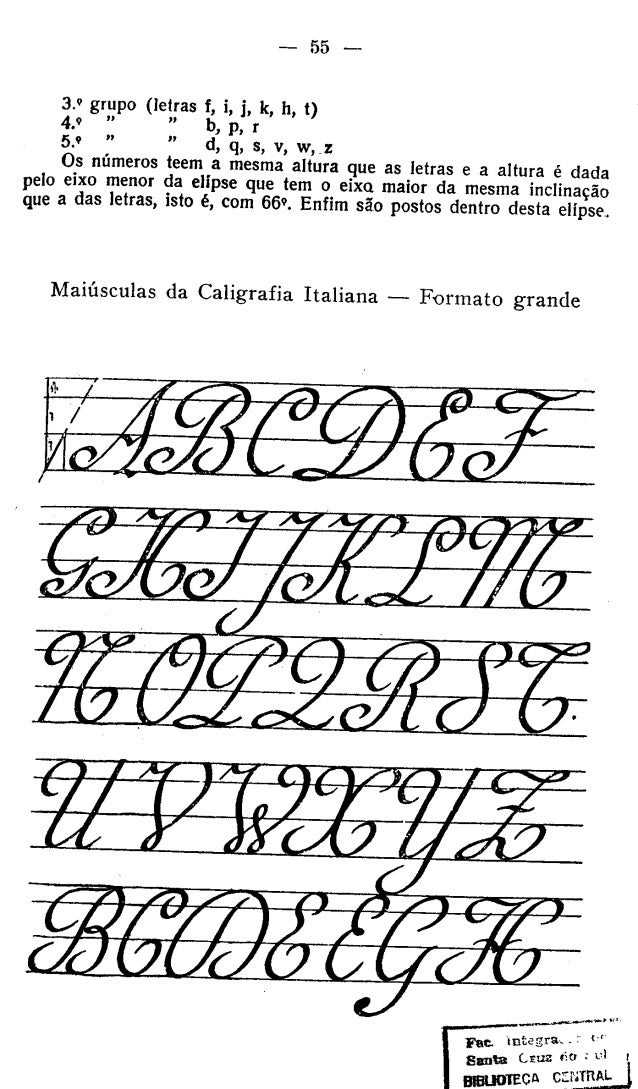 — 55 —
3.º grupo (letras f, i, j, k, h, t)
4.º " " b, p, r
5.º " " d, q, s, v, w, z
Os números teem a mesma altura que as letras e a altura é dada
pelo eixo menor da elípse que tem o eixo maior da mesma inclinação
que a das letras, isto é, com 66º. Enfim são postos dentro desta elípse.
Maiúsculas da Caligrafia Italiana — Formato grande
A B C D E F
G H I J K L M
N O P Q R S T.
U V W X Y Z
B C D E E G H
Fac. Integra
Santa Cruz do Sul
BIBLIOTECA CENTRAL